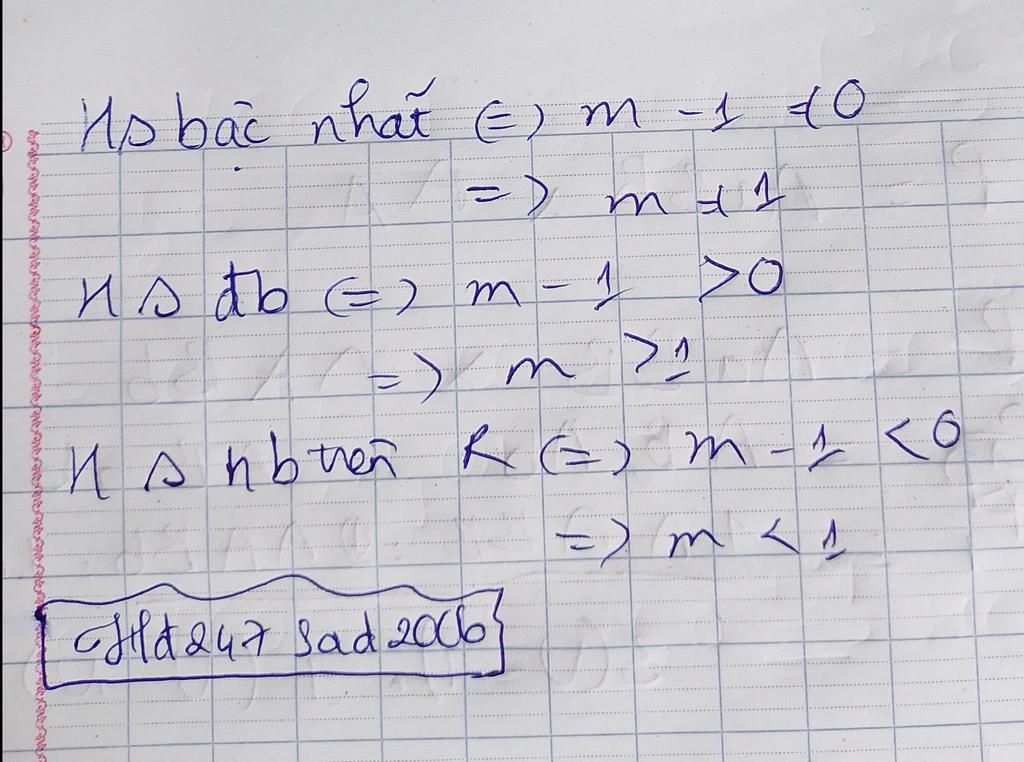 HS bậc nhất (=) m - 1 ≠ 0
=> m ≠ 1
HS đb (=) m - 1 > 0
=> m > 1
HS nb trên R (=) m - 1 < 0
=> m < 1
247 sad2006